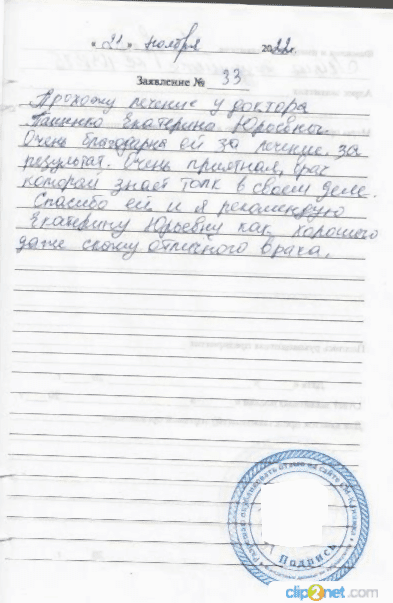 « 21 » ноября 2022г.
Заявление № 33
Прохожу лечение у доктора
Пащенко Екатерина Юрьевна.
Очень благодарна ей за лечение, за
результат. Очень приятная, врач
который знает толк в своем деле.
Спасибо ей и я рекомендую
Екатерину Юрьевну как хорошего
даже скажу отличного врача.
Подпись
clip2net.com